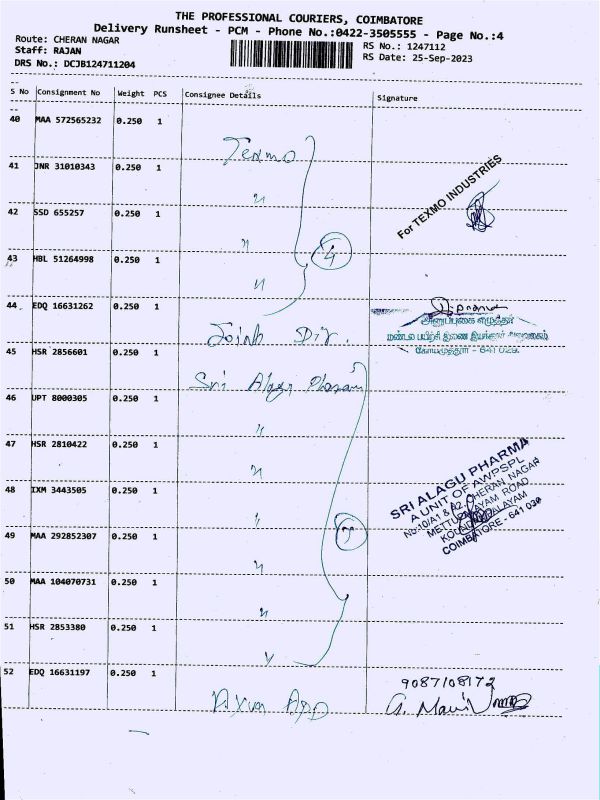 THE PROFESSIONAL COURIERS, COIMBATORE
Delivery Runsheet - PCM - Phone No.:0422-3505555 - Page No.:4
Route: CHERAN NAGAR
Staff: RAJAN
DRS No.: DCJB124711204
RS No.: 1247112
RS Date: 25-Sep-2023
S No Consignment No Weight PCS Consignee Details Signature
40 MAA 572565232 0.250 1
Texmo
41 JNR 31010343 0.250 1
"
For TEXMO INDUSTRIES
42 SSD 655257 0.250 1
"
43 HBL 51264998 0.250 1
4
"
44 EDQ 16631262 0.250 1
Joint Dir.
அனுப்புகை எழுத்தர்
மண்டல பயிற்சி இணை இயக்குநர் அலுவலகம்
கோயமுத்தூர் - 641 029.
45 HSR 2856601 0.250 1
Sri Alagu Pharam
46 UPT 8000305 0.250 1
"
47 HSR 2810422 0.250 1
"
48 IXM 3443505 0.250 1
"
SRI ALAGU PHARMA
A UNIT OF AWPSPL
No:10/A1 & A2, CHERAN NAGAR
METTUPALAYAM ROAD
KOUNDAMPALAYAM
COIMBATORE - 641 030
49 MAA 292852307 0.250 1
"
50 MAA 104070731 0.250 1
"
51 HSR 2853380 0.250 1
"
52 EDQ 16631197 0.250 1
9087108172